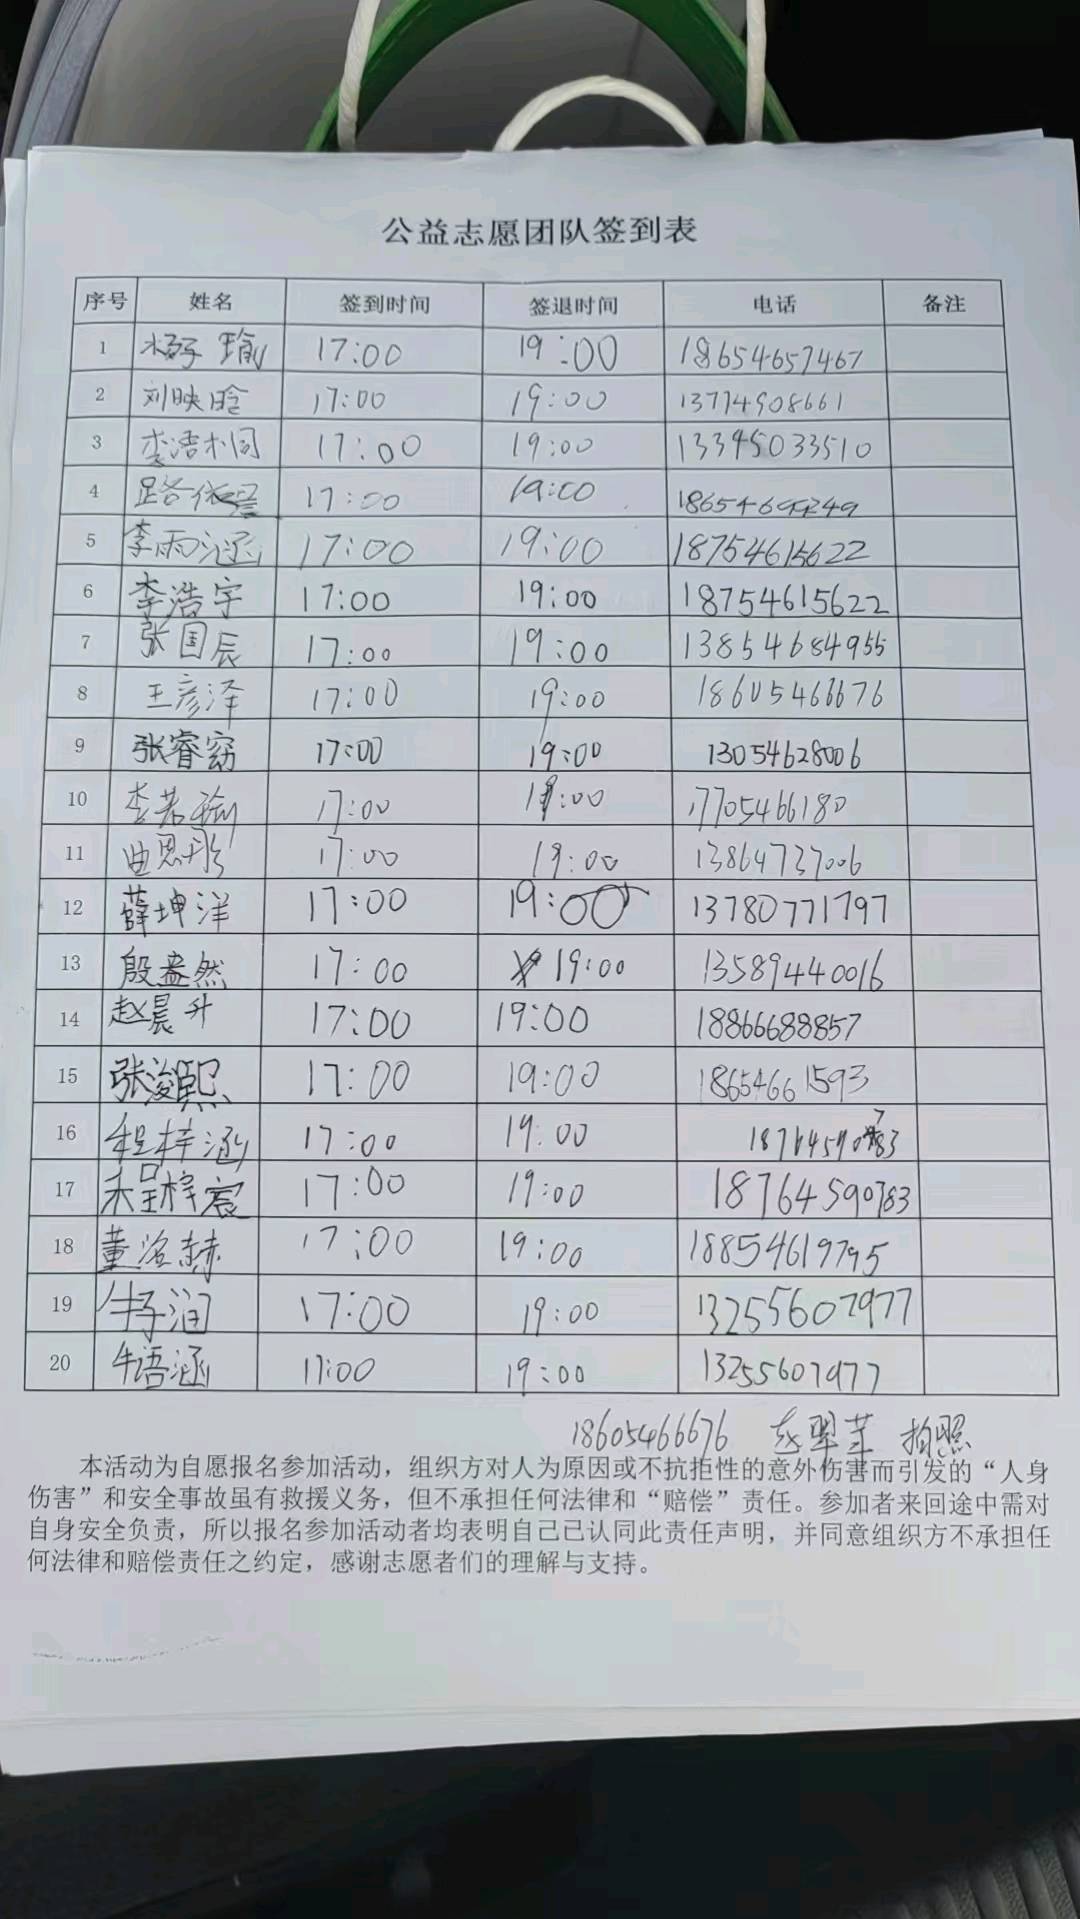 公益志愿团队签到表
序号 姓名 签到时间 签退时间 电话 备注
1 杨子瑜 17:00 19:00 18654657467
2 刘映晗 17:00 19:00 13774908661
3 李浩桐 17:00 19:00 13345033510
4 路依 17:00 19:00
5 李雨涵 17:00 19:00 18754615622
6 李浩宇 17:00 19:00 18754615622
7 张国辰 17:00 19:00 13854684955
8 王彦泽 17:00 19:00 18605466676
9 张睿窈 17:00 19:00 13054628006
10 李若瑜 17:00 19:00 17705466180
11 曲恩彤 17:00 19:00 13864737006
12 薛坤洋 17:00 19:00 13780771797
13 殷盎然 17:00 19:00 13589440016
14 赵晨升 17:00 19:00 18866688857
15 张浚熙 17:00 19:00 18654661593
16 程梓涵 17:00 19:00 18764590783
17 程梓宸 17:00 19:00 18764590783
18 董洺赫 17:00 19:00 18854619795
19 牛子润 17:00 19:00 13255607977
20 牛语涵 17:00 19:00 13255607977
18605466676 拍照
本活动为自愿报名参加活动，组织方对人为原因或不抗拒性的意外伤害而引发的“人身
伤害”和安全事故虽有救援义务，但不承担任何法律和“赔偿”责任。参加者来回途中需对
自身安全负责，所以报名参加活动者均表明自己已认同此责任声明，并同意组织方不承担任
何法律和赔偿责任之约定，感谢志愿者们的理解与支持。